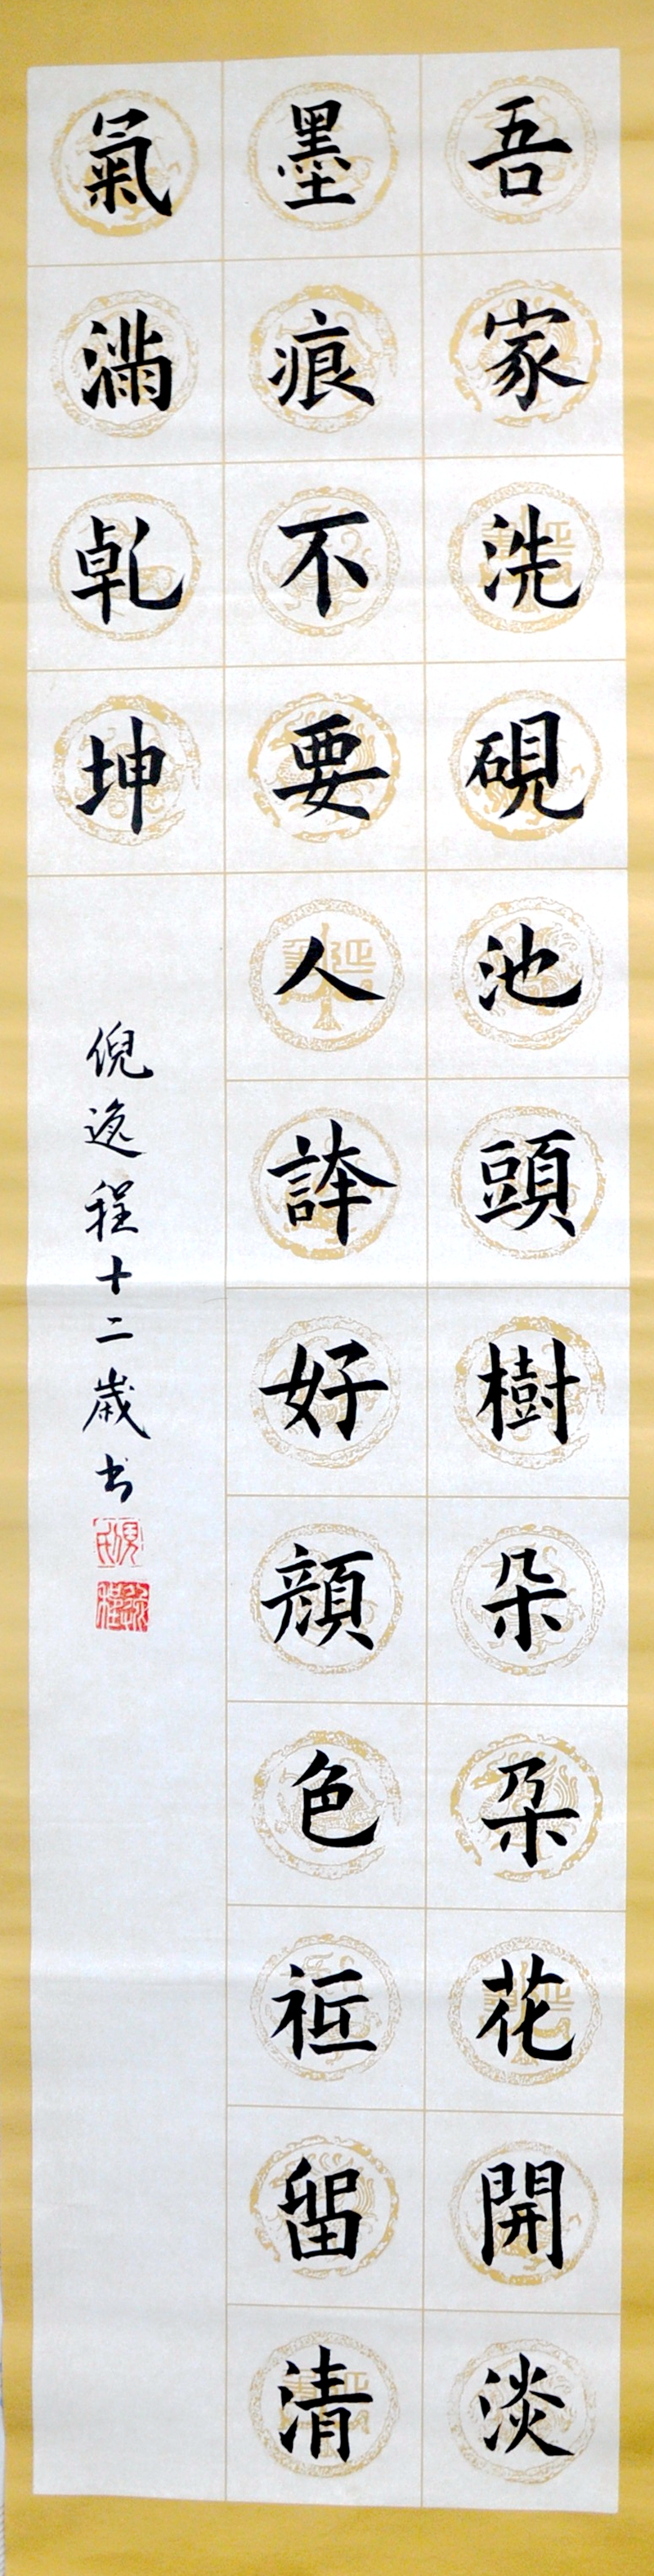 吾家洗硯池頭樹朵朵花開淡
墨痕不要人誇好顏色祇留清
氣滿乾坤
倪逸程十二歲书